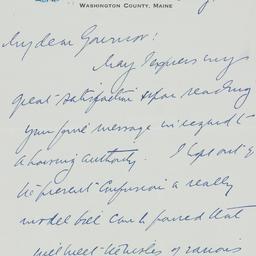 Washington County, Maine
My dear Governor:
May I express my
great satisfaction upon reading
your fine message in regard to
a housing authority. I hope out of
the present confusion a really
model bill can be passed that
will meet the wishes of various